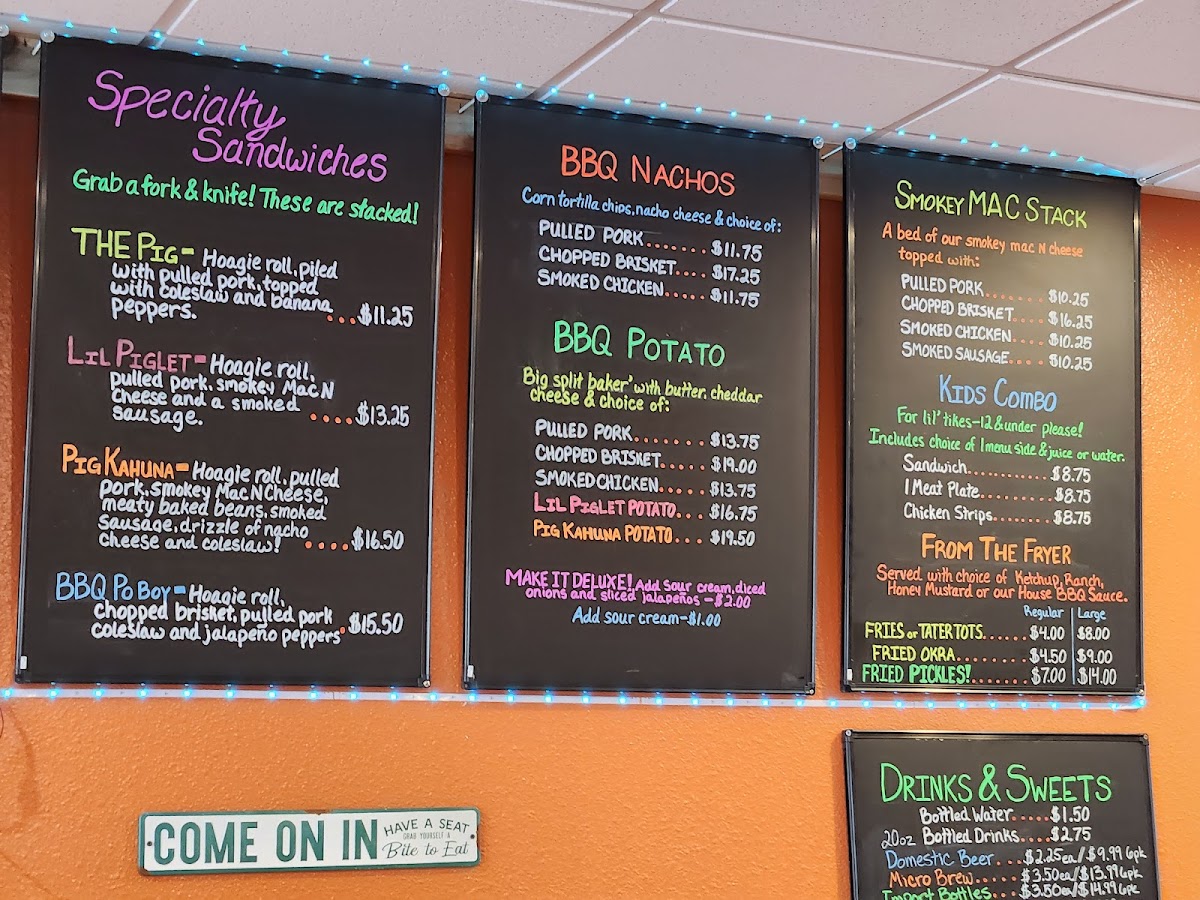 Specialty
Sandwiches
Grab a fork & knife! These are stacked!
THE PIG - Hoagie roll, piled
with pulled pork, topped
with coleslaw and banana
peppers. ...$11.25
LIL PIGLET = Hoagie roll,
pulled pork, smokey Mac N
Cheese and a smoked
sausage. ....$13.25
PIG KAHUNA = Hoagie roll, pulled
pork, smokey Mac N Cheese,
meaty baked beans, smoked
sausage, drizzle of nacho
cheese and coleslaw! ....$16.50
BBQ PO BOY = Hoagie roll,
chopped brisket, pulled pork
coleslaw and jalapeño peppers. $15.50
BBQ NACHOS
Corn tortilla chips, nacho cheese & choice of:
PULLED PORK....... $11.75
CHOPPED BRISKET.... $17.25
SMOKED CHICKEN..... $11.75
BBQ POTATO
Big split baker' with butter, cheddar
cheese & choice of:
PULLED PORK....... $13.75
CHOPPED BRISKET..... $19.00
SMOKED CHICKEN..... $13.75
LIL PIGLET POTATO... $16.75
PIG KAHUNA POTATO... $19.50
MAKE IT DELUXE! Add sour cream, diced
onions and sliced jalapeños - $2.00
Add sour cream - $1.00
SMOKEY MAC STACK
A bed of our smokey mac N cheese
topped with:
PULLED PORK....... $10.25
CHOPPED BRISKET.... $16.25
SMOKED CHICKEN.... $10.25
SMOKED SAUSAGE.... $10.25
KIDS COMBO
For lil' tikes - 12 & under please!
Includes choice of 1 menu side & juice or water.
Sandwich..........$8.75
1 Meat Plate........$8.75
Chicken Strips.......$8.75
FROM THE FRYER
Served with choice of Ketchup, Ranch,
Honey Mustard or our House BBQ Sauce.
Regular Large
FRIES or TATER TOTS......$4.00 $8.00
FRIED OKRA.........$4.50 $9.00
FRIED PICKLES!.......$7.00 $14.00
DRINKS & SWEETS
Bottled Water.....$1.50
20oz Bottled Drinks....$2.75
Domestic Beer...$2.25ea/$9.99 6pk
Micro Brew.....$3.50ea/$13.99 6pk
Import Bottles...$3.50ea/$14.99 6pk
COME ON IN
HAVE A SEAT
GRAB YOURSELF A
Bite to Eat